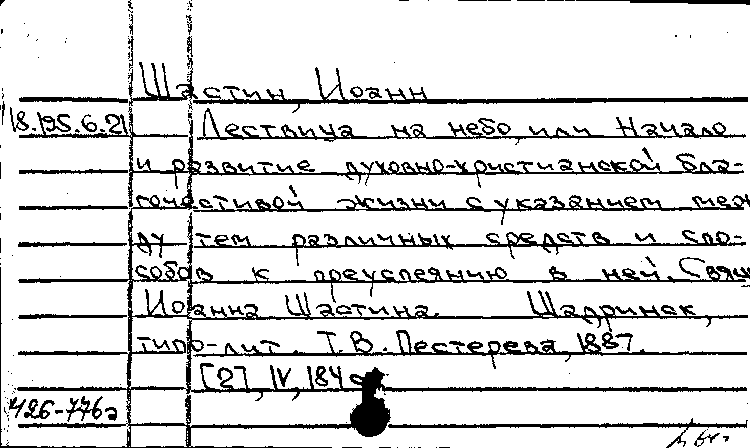 Шастин, Иоанн
18.195.6.21 Лествица на небо, или Начало
и развитие духовно-христианской бла-
гочестивой жизни с указанием меж
ду тем различных средств и спо-
собов к преуспеянию в ней. Свящ
Иоанна Шастина. Шадринск,
типо-лит. Т.В. Пестерева, 1887.
[2], IV, 184 с.
426-776а